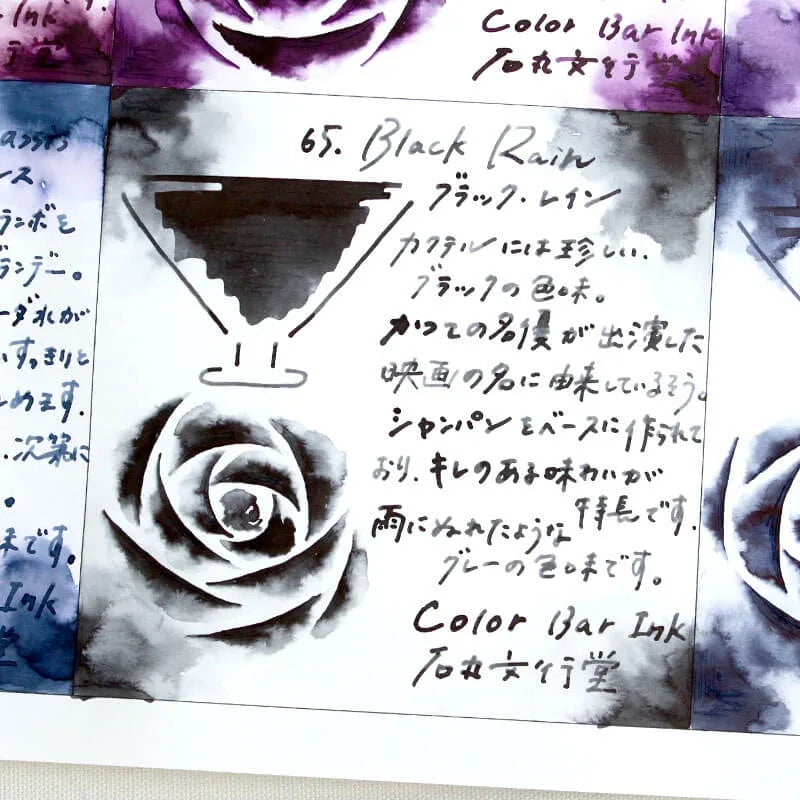 Ink
Color Bar Ink
石丸文行堂
assis
ス、
ランボを
ランデー。
ーダ水が
すっきりと
しめます。
、次第に
。
です。
Ink
堂
65. Black Rain
ブラック・レイン
カクテルには珍しい、
ブラックの色味。
かつての名優が出演した
映画の名に由来しているそう。
シャンパンをベースに作られて
おり、キレのある味わいが
特長です。
雨にぬれたような
グレーの色味です。
Color Bar Ink
石丸文行堂